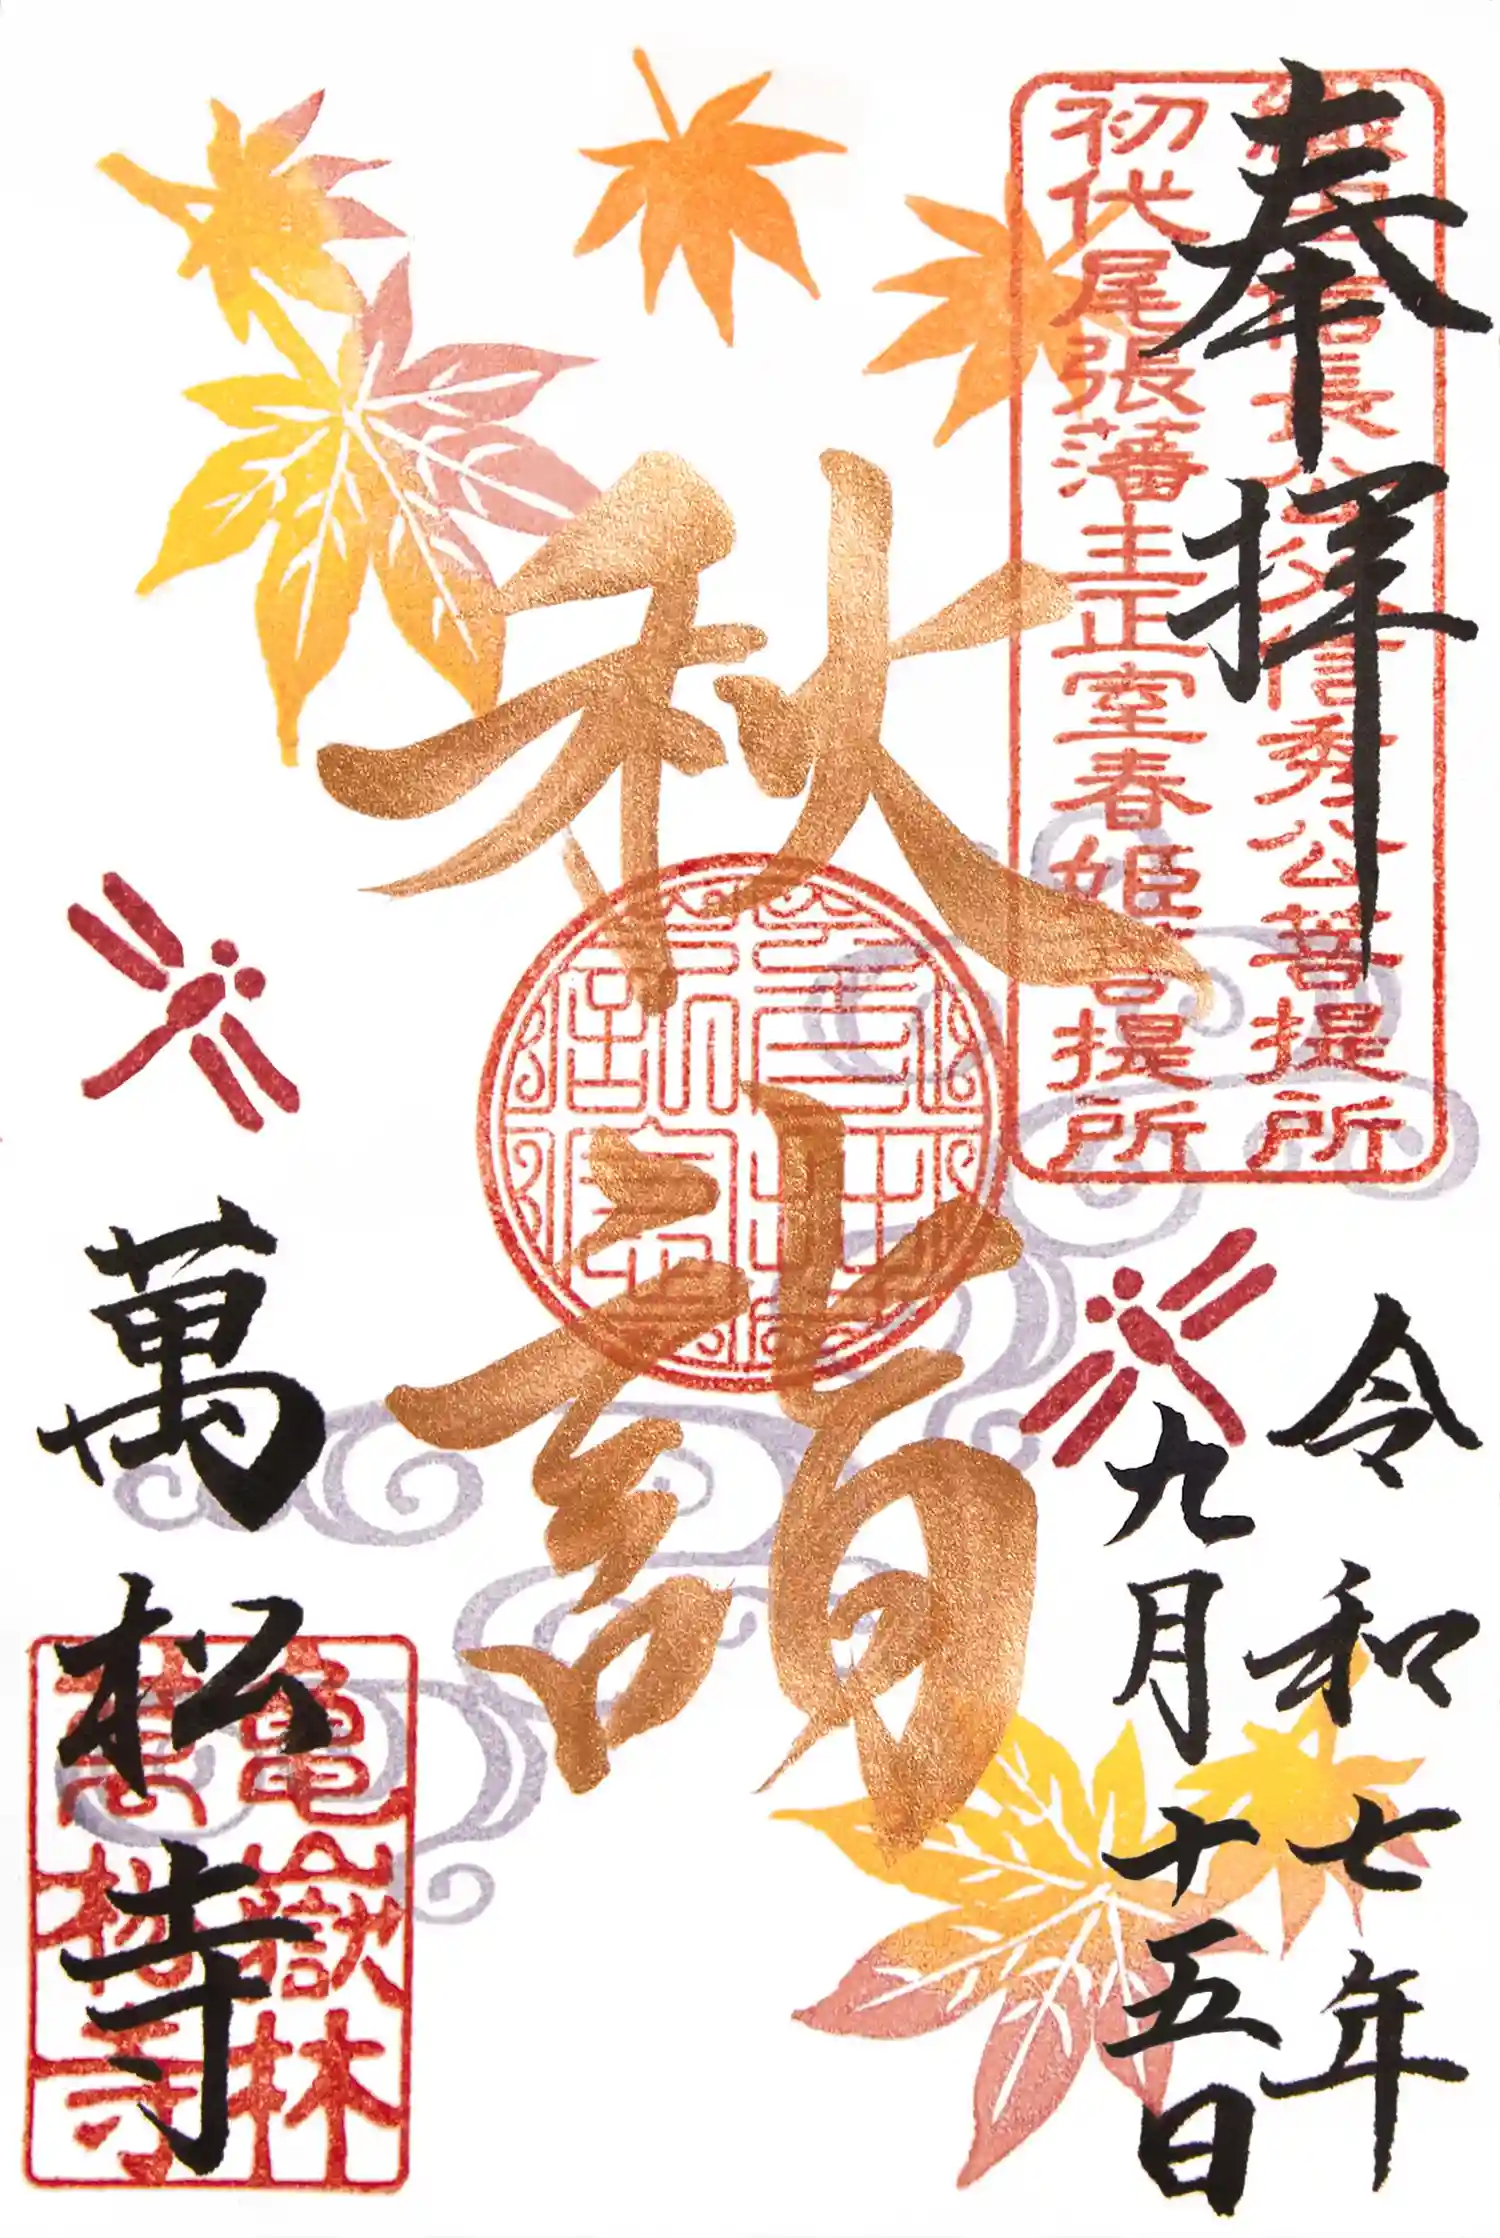 奉拝
織田信長公父信秀公菩提所
初代尾張藩主正室春姫菩提所
令和七年
九月十五日
秋詣
萬松寺
亀嶽林
萬松寺